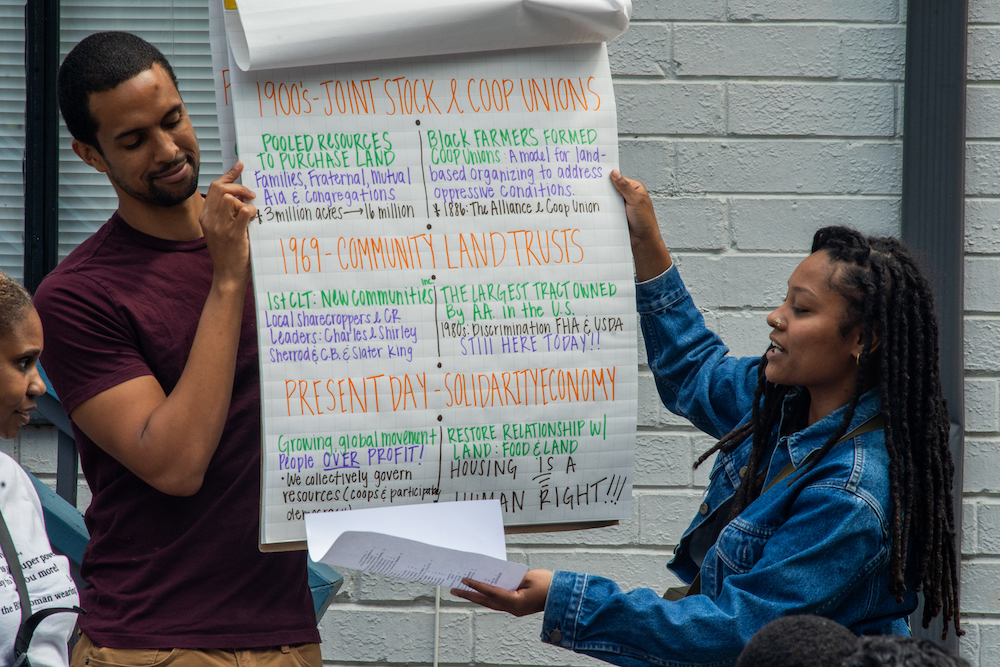 1900's - JOINT STOCK & COOP UNIONS
POOLED RESOURCES
TO PURCHASE LAND
Families, Fraternal, Mutual
Aid & congregations
* 3 million acres → 16 million
Black FARMERS FORMED
COOP UNIONS: A model for land-
based organizing to address
oppressive conditions.
* 1886: The Alliance & Coop Union
1969 - COMMUNITY LAND TRUSTS
1st CLT: New Communities inc
Local sharecroppers & CR
Leaders: Charles & Shirley
Sherrod & C.B. & Slater King
THE LARGEST TRACT OWNED
By A.A. in the U.S.
1980s: Discrimination FHA & USDA
STILL HERE TODAY!!
PRESENT DAY - SOLIDARITY ECONOMY
Growing global movement
People OVER PROFIT!
• We collectively govern
resources (coops & participatory
democracy)
RESTORE RELATIONSHIP W/
LAND: FOOD & LAND
HOUSING IS A
HUMAN RIGHT!!!
super
you more!
the
woman wearing